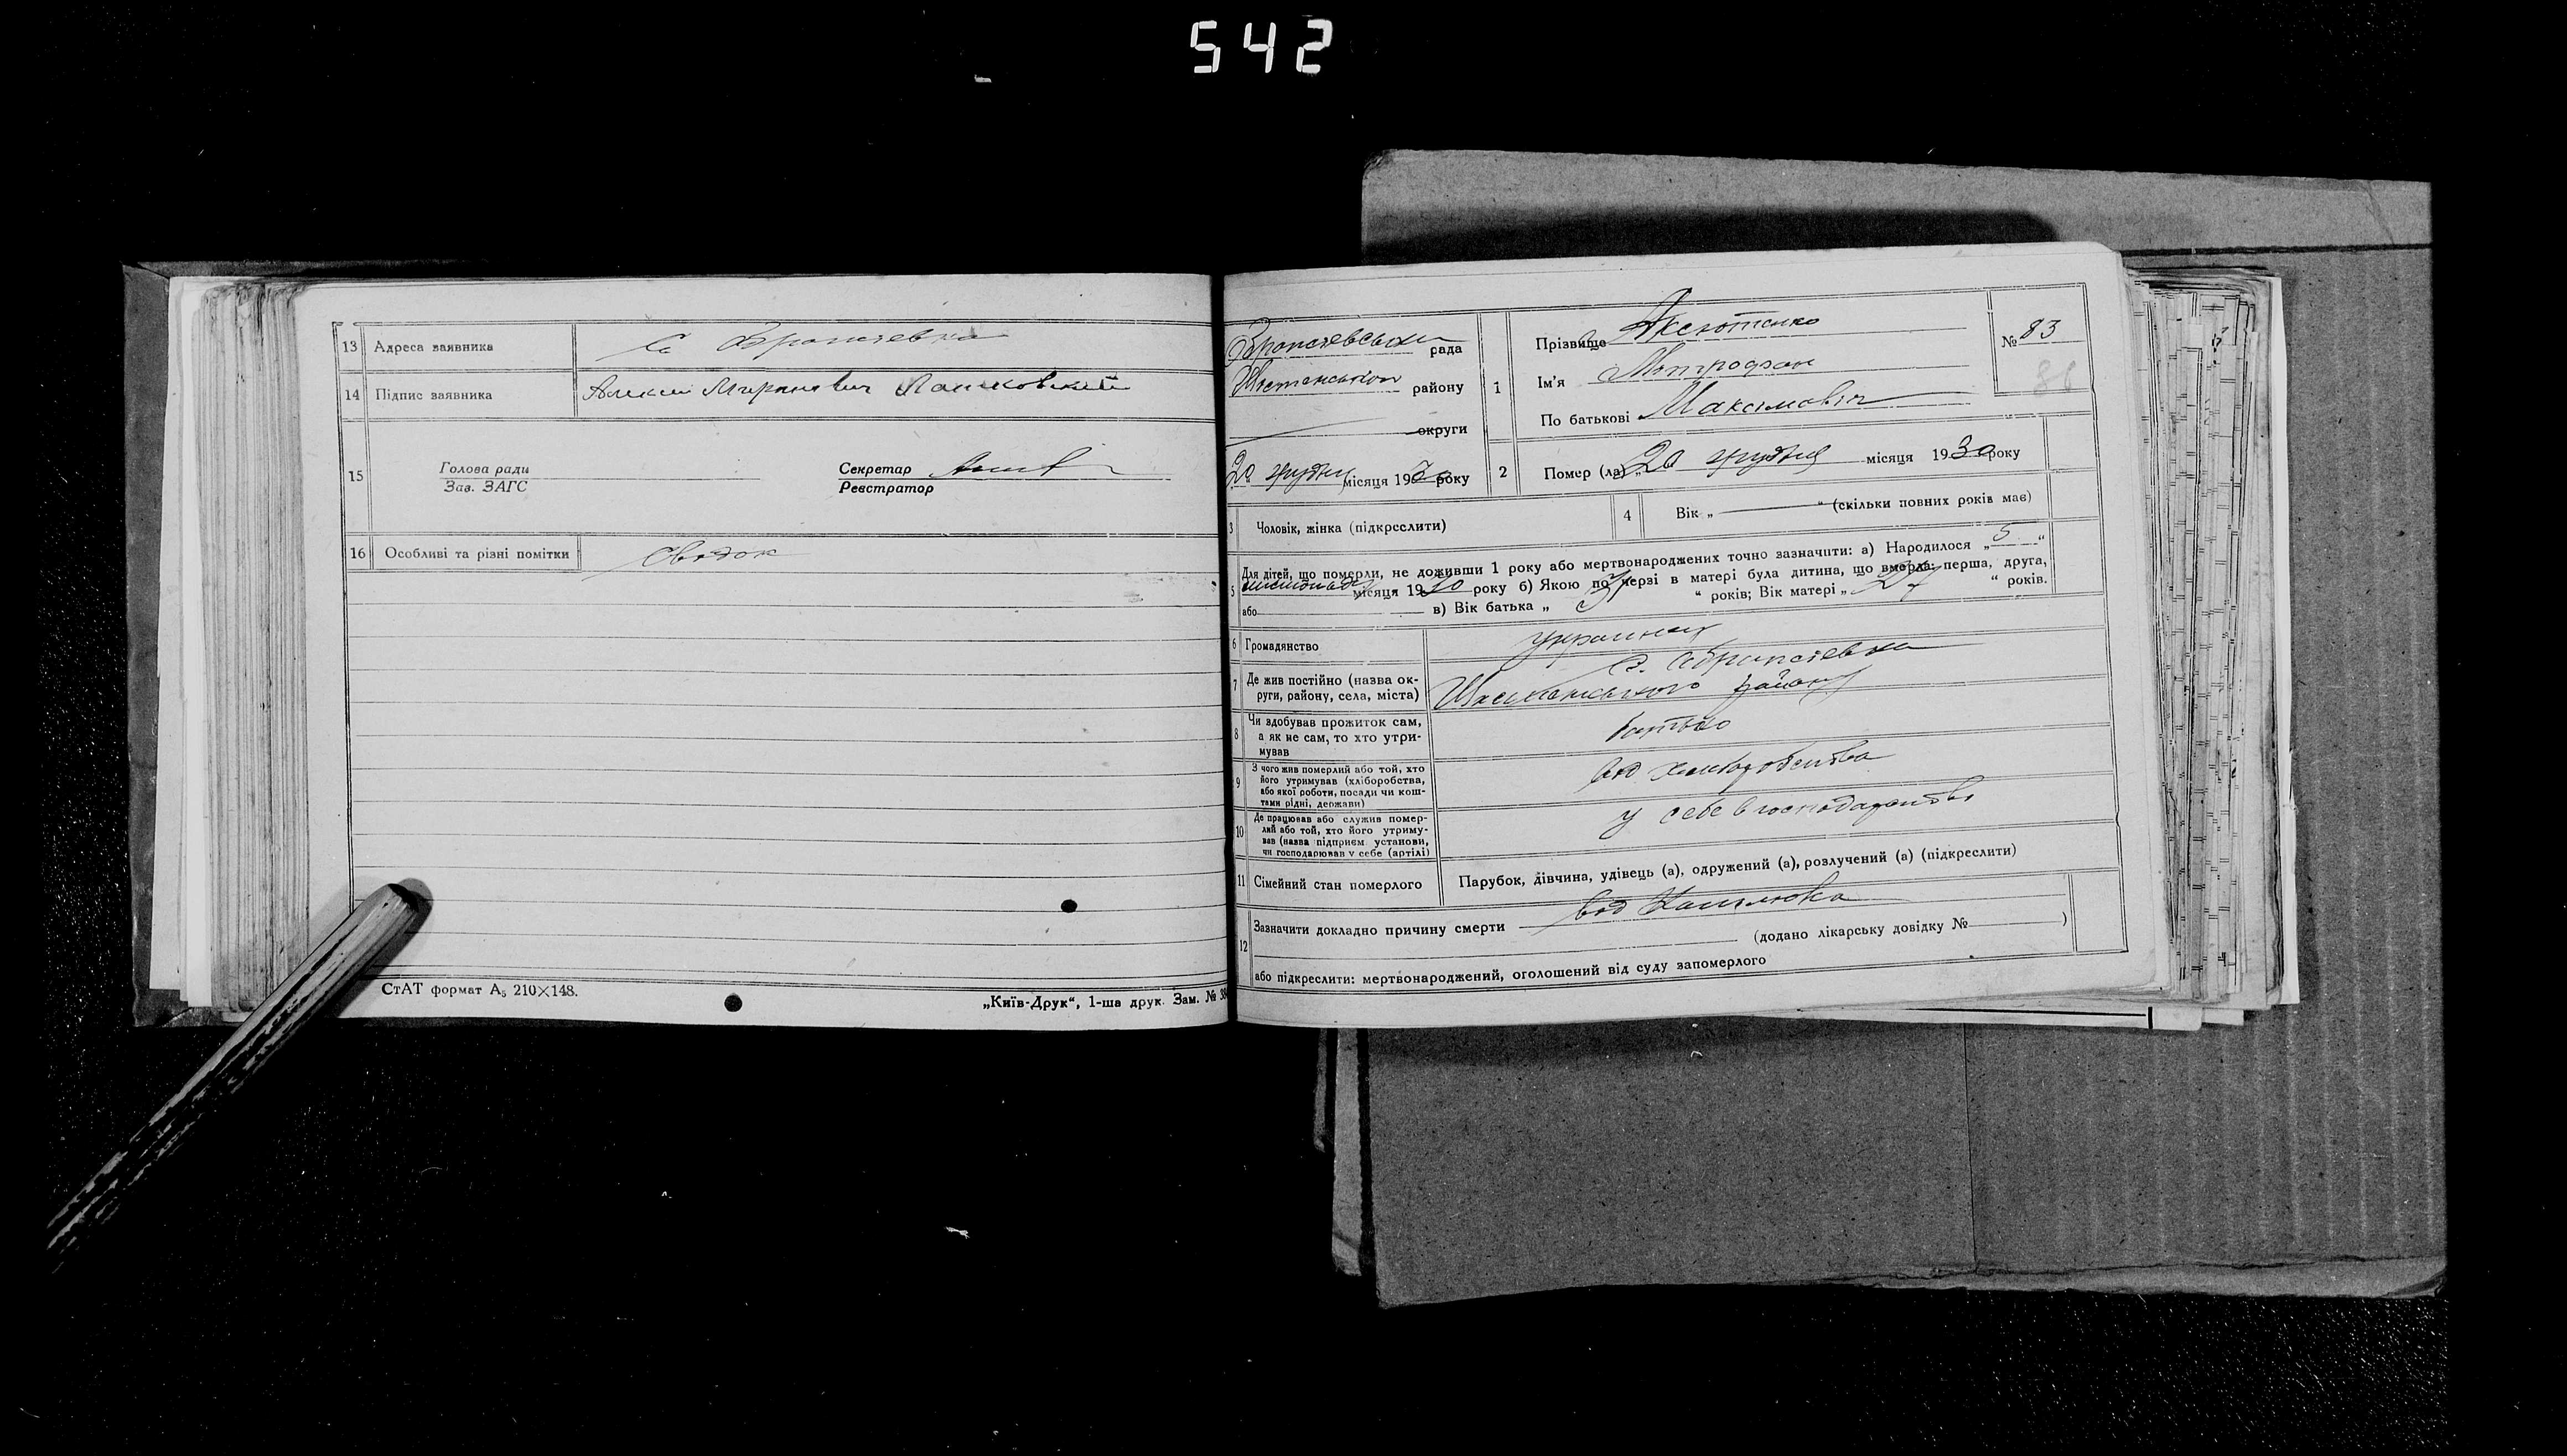 542
13 Адреса заявника с
14 Підпис заявника Алексей Миронович
15 Голова ради
Зав. ЗАГС
Секретар
Реєстратор
16 Особливі та різні помітки свідок
СтАТ формат А5 210×148.
„Київ-Друк“, 1-ша друк. Зам. №
рада
району
округи
20 грудня місяця 1930 року
1 Прізвище Аксютенко
Ім'я Митрофан
По батькові Максимович
№ 83
86
2 Помер (ла) „20 грудня місяця 1930 року
3 Чоловік, жінка (підкреслити)
4 Вік „ “ (скільки повних років має)
5 Для дітей, що померли, не доживши 1 року або мертвонароджених точно зазначити: а) Народилося „5“
листопада місяця 1930 року б) Якою по черзі в матері була дитина, що вмерла: перша, друга,
або в) Вік батька „ “ років; Вік матері „27“ років.
6 Громадянство
7 Де жив постійно (назва округи, району, села, міста) с.
району
8 Чи здобував прожиток сам,
а як не сам, то хто утримував
батько
9 З чого жив померлий або той, хто
його утримував (хліборобства,
або якої роботи, посади чи коштами рідні, держави)
від хліборобства
10 Де працював або служив померлий або той, хто його утримував (назва підприєм. установи,
чи господарював у себе (артілі)
у себе в господарстві
11 Сімейний стан померлого Парубок, дівчина, удівець (а), одружений (а), розлучений (а) (підкреслити)
12 Зазначити докладно причину смерти від Кашлюка
(додано лікарську довідку № )
або підкреслити: мертвонароджений, оголошений від суду запомерлого